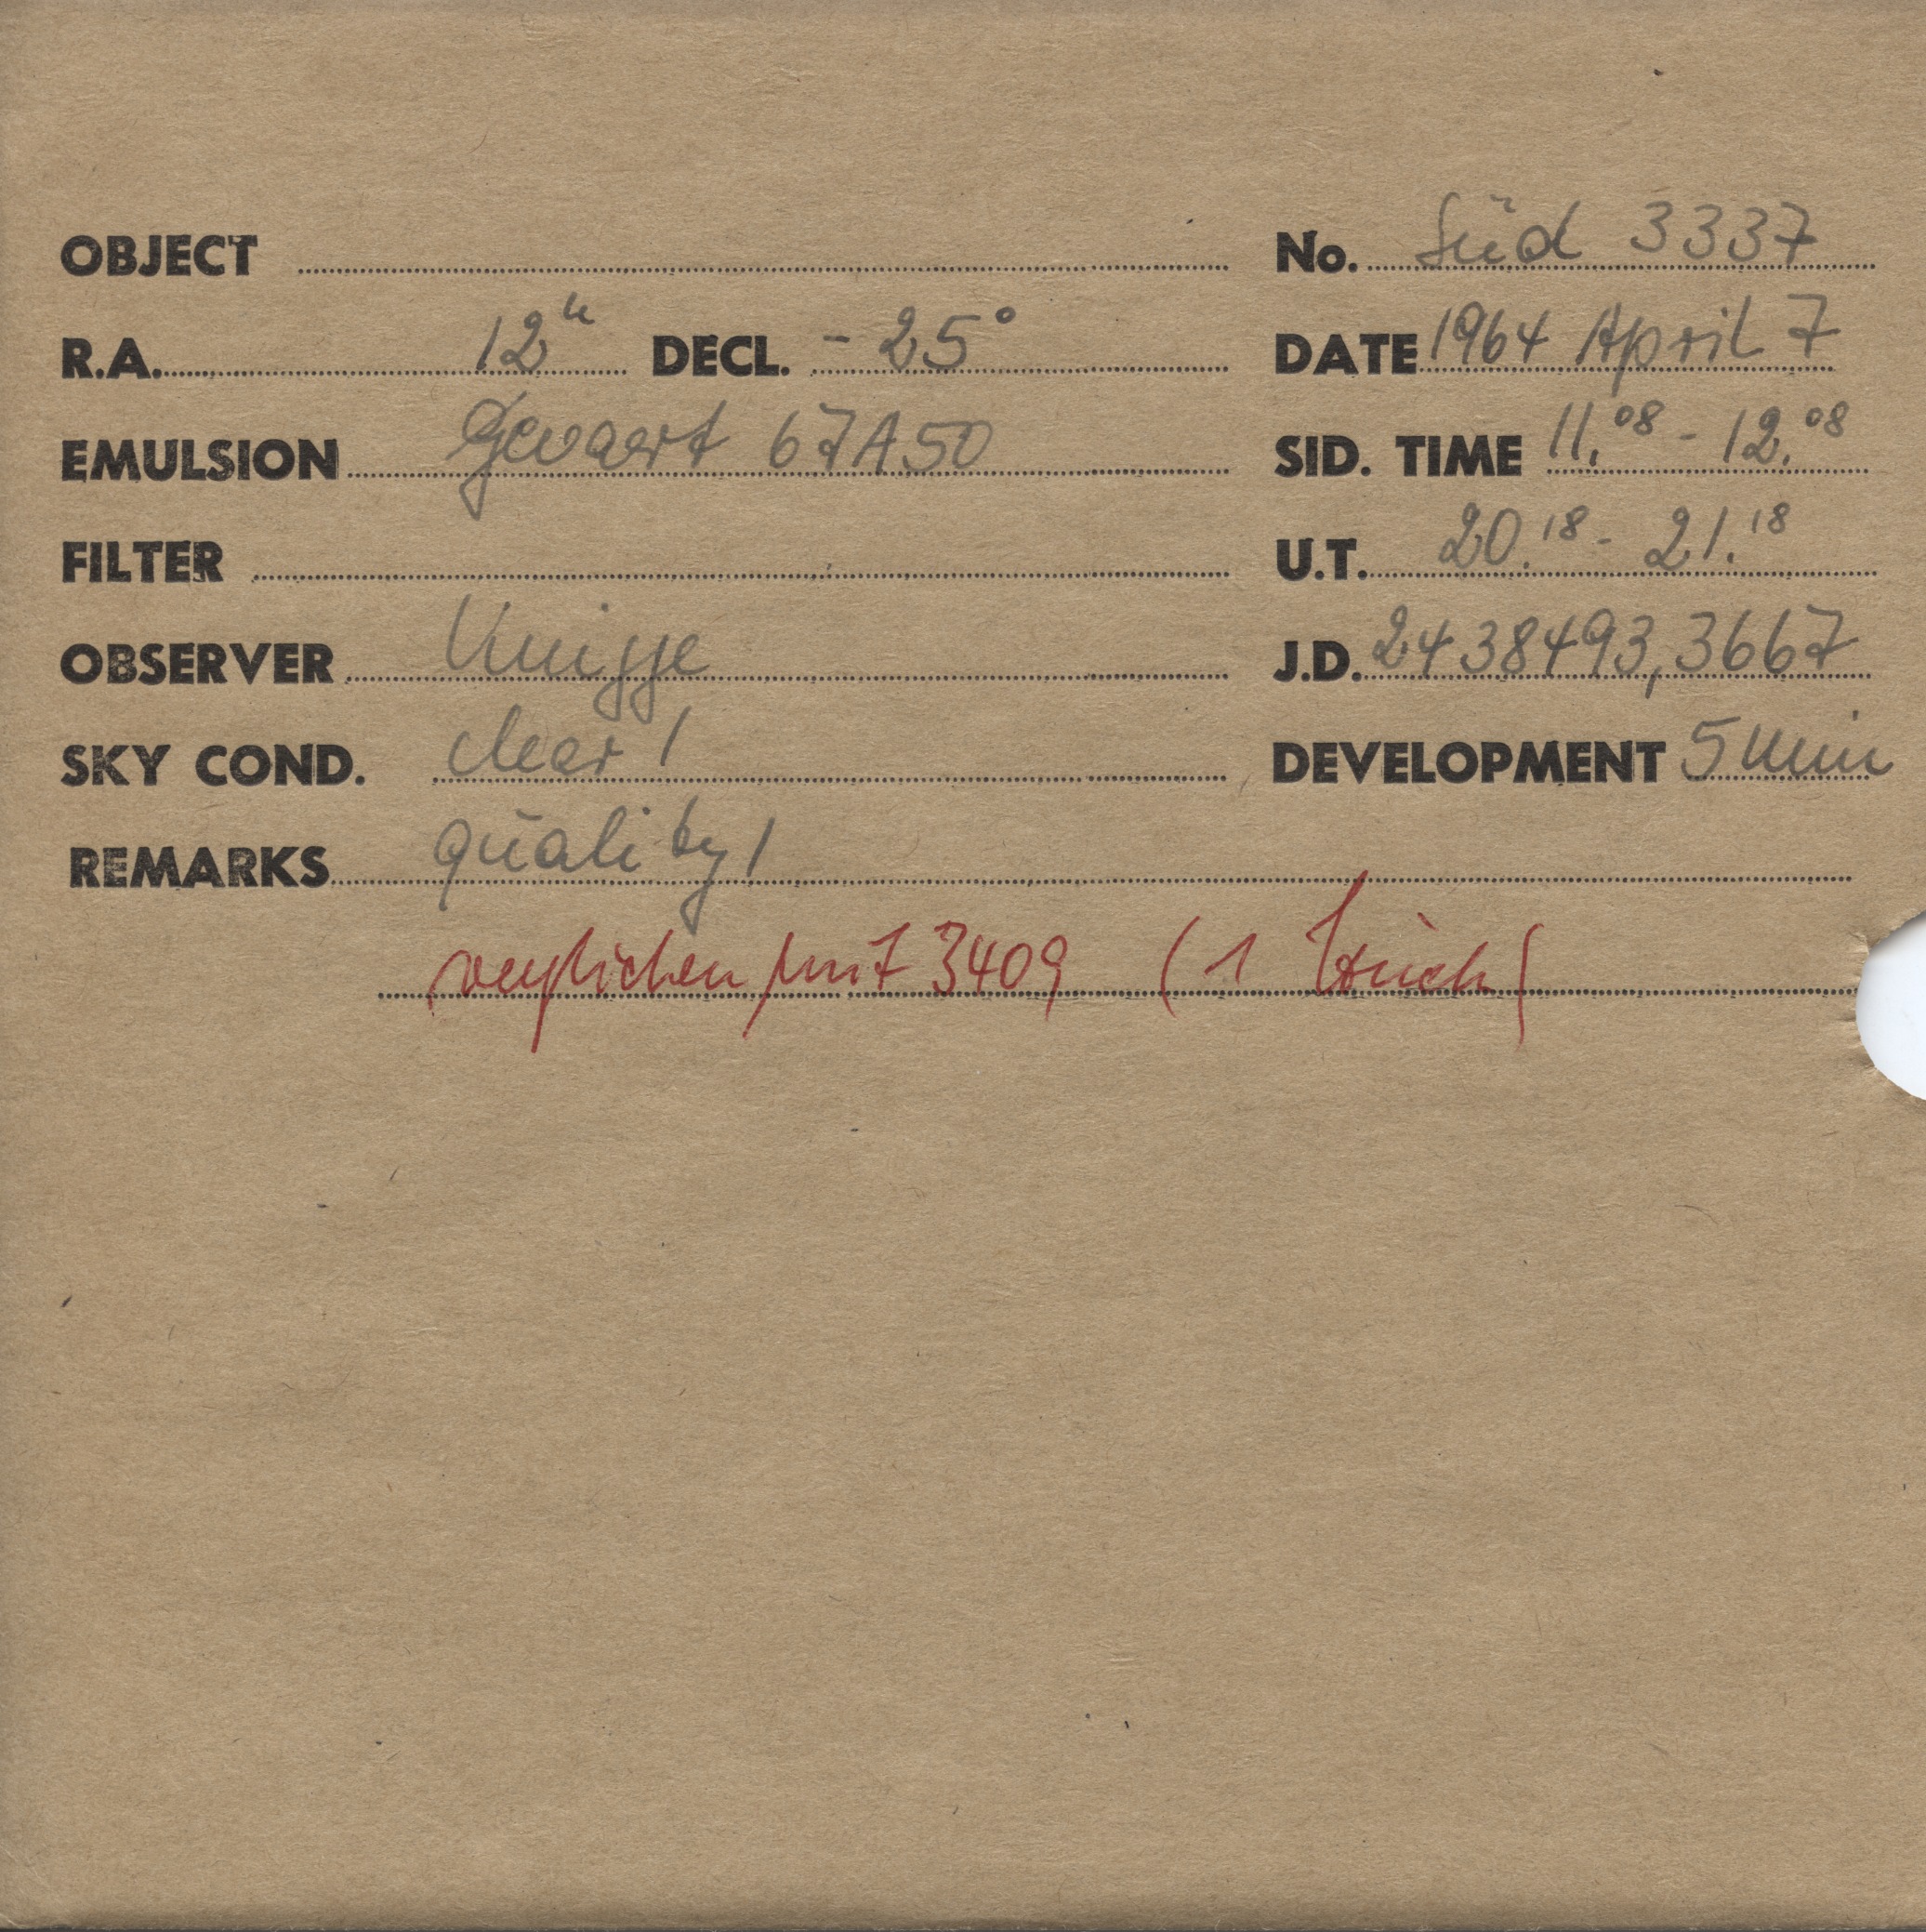 OBJECT No. Süd 3337
R.A. 12h DECL. -25° DATE 1964 April 7
EMULSION Gevaert 67A50 SID. TIME 11.08 - 12.08
FILTER U.T. 20.18 - 21.18
OBSERVER Knigge J.D. 2438493,3667
SKY COND. clear 1 DEVELOPMENT 5 min
REMARKS quality 1
verglichen mit 3409 (1